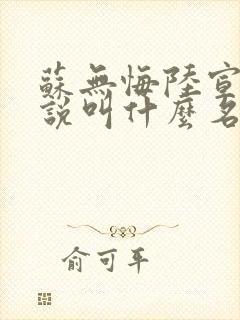 蘇無悔陸宣
說叫什麼名
俞可平